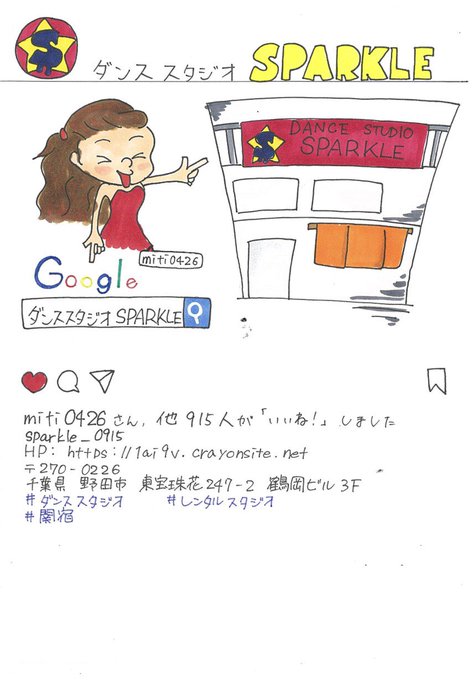 S
ダンス スタジオ SPARKLE
S DANCE STUDIO
SPARKLE
miti0426
Google
ダンススタジオ SPARKLE
miti0426さん, 他 915人が「いいね!」しました
sparkle_0915
HP: https://1ai9v.crayonsite.net
〒270-0226
千葉県 野田市 東宝珠花247-2 鶴岡ビル 3F
#ダンススタジオ #レンタルスタジオ
#関宿